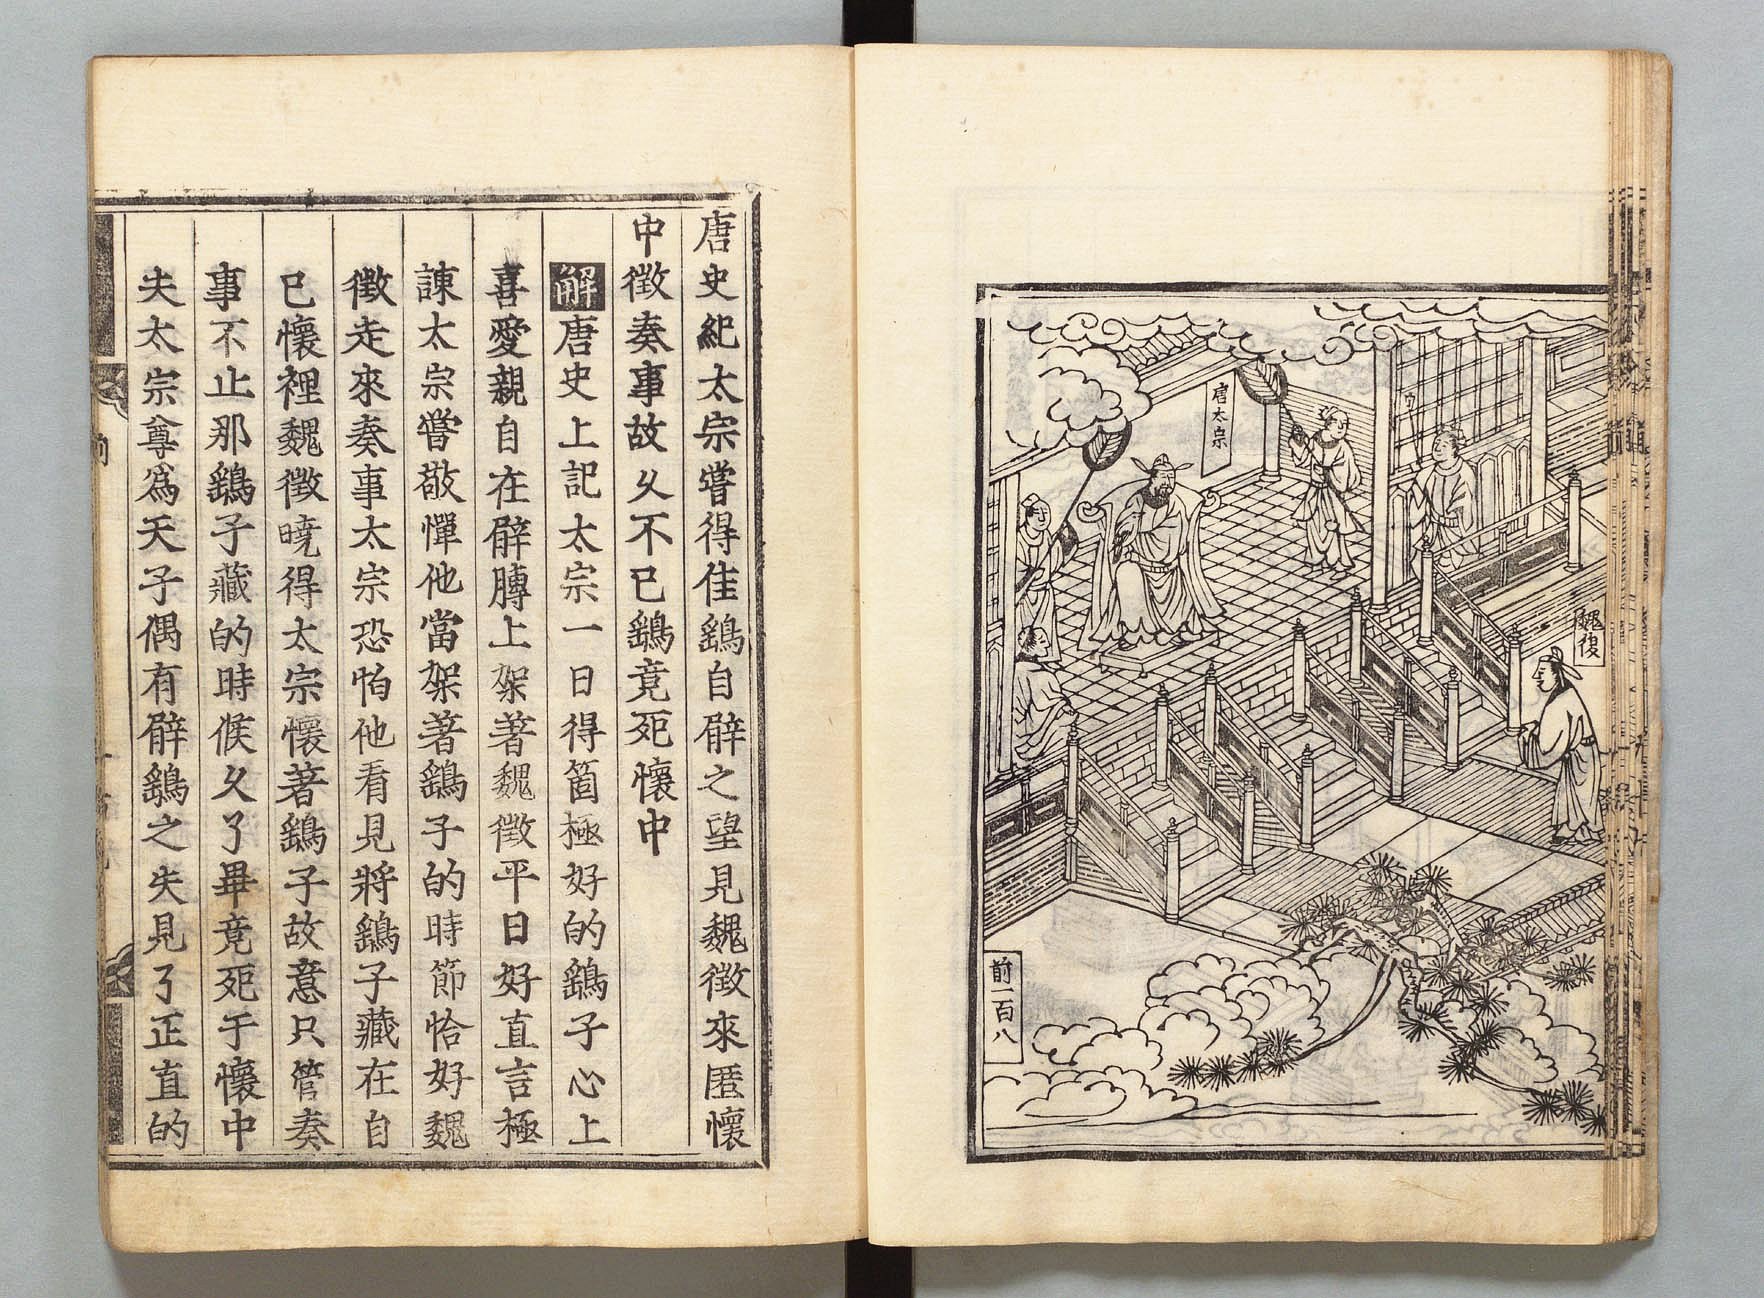 唐太宗
魏徵
前一百八
唐史紀太宗嘗得佳鷂自臂之望見魏徵來匿懷
中徵奏事故久不已鷂竟死懷中
解唐史上記太宗一日得箇極好的鷂子心上
喜愛親自在臂膊上架著魏徵平日好直言極
諫太宗嘗敬憚他當架著鷂子的時節恰好魏
徵走來奏事太宗恐怕他看見將鷂子藏在自
已懷裡魏徵曉得太宗懷著鷂子故意只管奏
事不止那鷂子藏的時候久了畢竟死于懷中
夫太宗尊為天子偶有臂鷂之失見了正直的